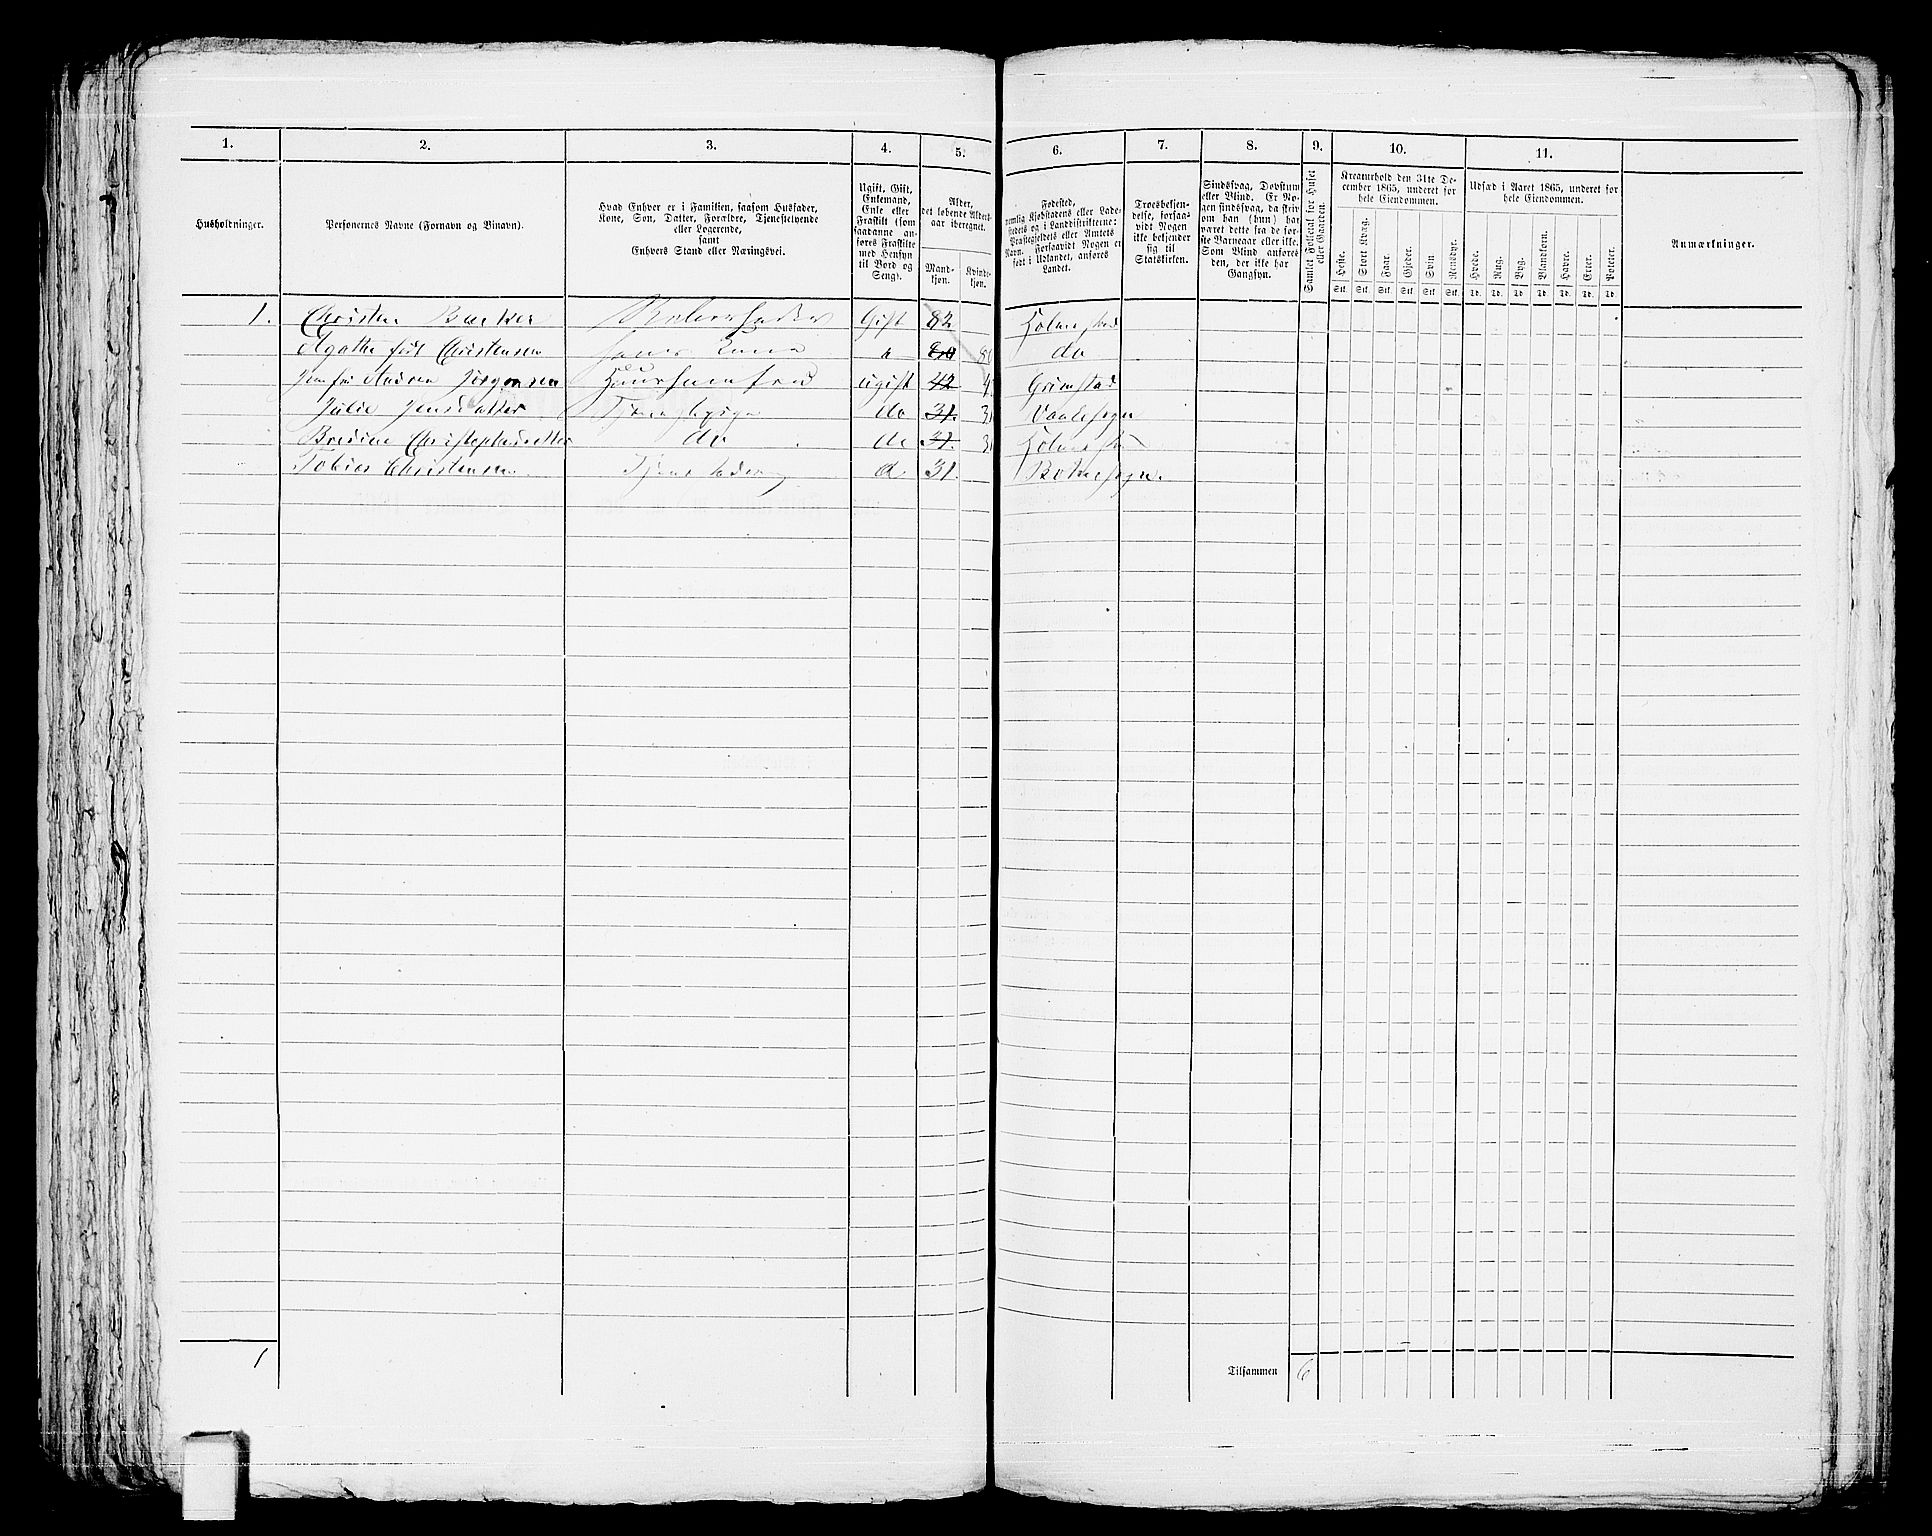 1. 2. 3. 4. 5. 6. 7. 8. 9. 10. 11.
Husholdninger.
Personernes Navne (Fornavn og Binavn).
Hvad Enhver er i Familien, saasom Husfader,
Kone, Son, Datter, Forældre, Tjenestetyende
eller Logerende,
samt
Enhvers Stand eller Næringsvei.
Ugift, Gift,
Enkemand,
Enke eller
Fraskilt (som
saadanne an-
føres Fraskilte
med Hensyn
til Bord og
Seng).
Alder,
det løbende Alders-
aar iberegnet.
Mand-
kjøn.
Kvinde-
kjøn.
Fødested,
nemlig Kjøbstadens eller Lade-
stedets og i Landdistrikterne:
Præstegjeldets eller Amtets
Navn. Forsaavidt Nogen er
født i Udlandet, anføres
Landet.
Troesbekjen-
delse, forsaa-
vidt Nogen
ikke bekjender
sig til
Statskirken.
Sindssvag, Døvstum
eller Blind. Er No-
gen sindssvag, da skriv
om han (hun) har
været dette fra de før-
ste Barneaar eller ikke.
Som Blind anføres
den, der ikke har
Gangsyn.
Samlet Folketal for Huset
eller Gaarden.
Kreaturhold den 31te De-
cember 1865, underet for
hele Eiendommen.
Heste. Stort Kvæg. Faar. Gjeder. Svin. Rensdyr.
Stk. Stk. Stk. Stk. Stk. Stk.
Udsæd i Aaret 1865, underet for
hele Eiendommen.
Hvede. Rug. Byg. Blandkorn. Havre. Erter. Poteter.
Td. Td. Td. Td. Td. Td. Td.
Anmærkninger.
1. Christen Backer Gift 82 Holmestad
Agathe født Christensen hans Kone " 80 80 do
Jomfru Andrea Jørgensen Huusjomfrue ugift 42 Grimstad
Julie Jensdatter Tjenestepige do 31. 31 Vaalesogn
Bredine Christophersdatter do do 31. 31
Tobias Christensen 31. Botnesogn.
1
Tilsammen 6